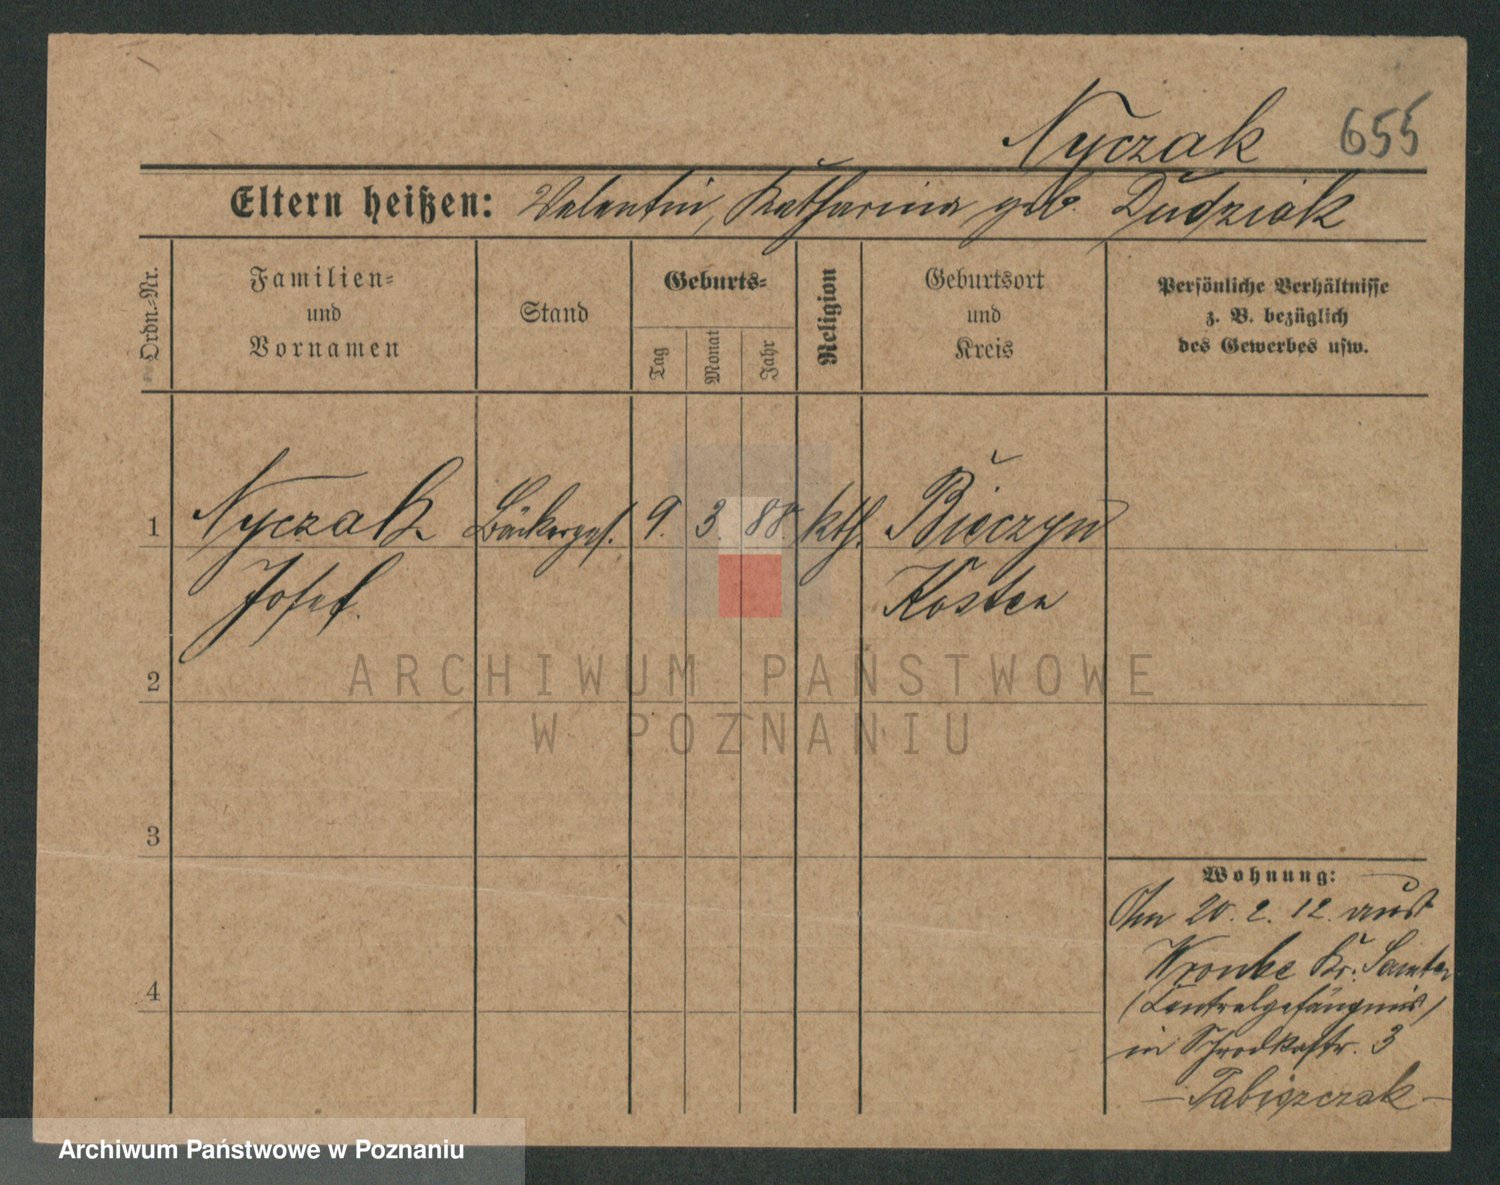 Nyczak 655
Eltern heißen: Valentin, Katharina geb. Dudziak
Ordn.-Nr.
Familien-
und
Vornamen
Stand
Geburts-
Tag
Monat
Jahr
Religion
Geburtsort
und
Kreis
Persönliche Verhältnisse
z. B. bezüglich
des Gewerbes usw.
1 Nyczak Bäckerges. 9. 3. 88. kth. Bieczyn
Josef. Kosten
2
3
4
Wohnung:
Am 20. 2. 12. aus
Wronke Kr. Samter
(Centralgefängnis)
in Schrodkastr. 3
— Tabiszczak —
ARCHIWUM PAŃSTWOWE
W POZNANIU
Archiwum Państwowe w Poznaniu